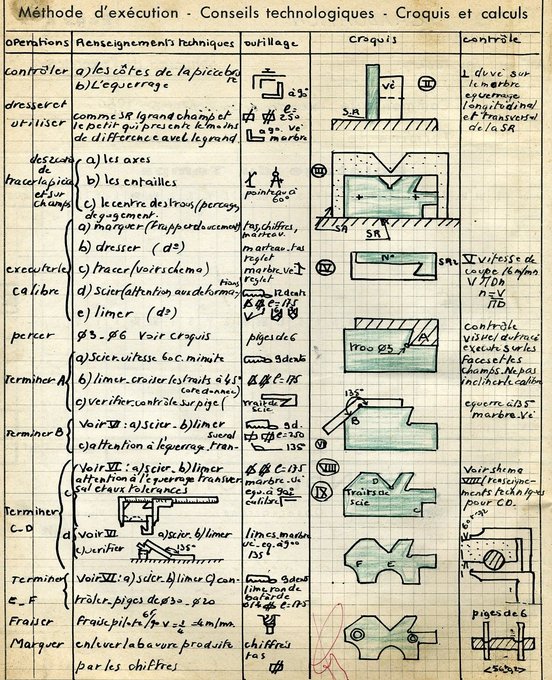 Méthode d'exécution - Conseils technologiques - Croquis et calculs
Operations
Renseignements techniques
outillage
croquis
contrôle
contrôler
a) les côtes de la pièce
b) L'equerrage
à 90
Vé
S.R
II
⊥ du vé sur
le marbre
equerrage
longitudinal
et transversal
de la SR
dresser et
utiliser
comme SR 1 grand champ et
le petit qui présente le moins
de difference avec le grand
l=
250
à 90. Vé
marbre
tracer la pièce
et sur
champs
a) les axes
b) les entailles
c) le centre des trous (perçage,
degugement.
pointeau à
60°
III
SR
SR
executer le
calibre
a) marquer (frapper doucement)
b) dresser (d°)
c) tracer (voir schema)
d) scier (attention aux deforma-
tions
e) limer (d°)
tas, chiffres,
marteau.
marteau. tas
reglet
marbre. vé
reglet
12 dents
l=175
N°
SR2
IV
V vitesse de
coupe 16 m/mn
V ΠDn
n=V
ΠD
percer
Ø3 - Ø6 voir croquis
piges de 6
trou Ø3
A
contrôle
visuel du tracé
executé sur les
faces et les
champs. Ne pas
incliner le calibre
Terminer A
a) Scier. vitesse 60 c. minute
b) limer. croiser les traits à 45°
c) verifier. contrôle sur pige
9 dents
l=175
trait de
scie
Terminer B
voir VI: a) scier. b) limer
c) attention à l'equerrage. tran-
sversal
9d.
l=250
135
135°
B
VI
equerre à 135
marbre. vé
Terminer
C-D
c
voir VI: a) scier. b) limer
attention à l'équerrage transver
sal et aux tolerances
l=175
marbre. vé
equ. à 90°
calibre
VIII
IX
D
Traits de
scie
C
voir shema
VIII (renseigne-
ments techniques
pour CD.
d
voir VI
a) scier. b) limer
c) verifier
135°
limes. marbre
vé. eq. à 90°
135
F
E
Terminer
E_F
voir VI: a) scier. b) limer c) con-
trôler. piges de Ø30 - Ø20
9 dents
lime ronde
batarde
l=175
Fraiser
fraise pilote
chiffres
tas
piges de 6
Marquer
enlever la bavure produite
par les chiffres